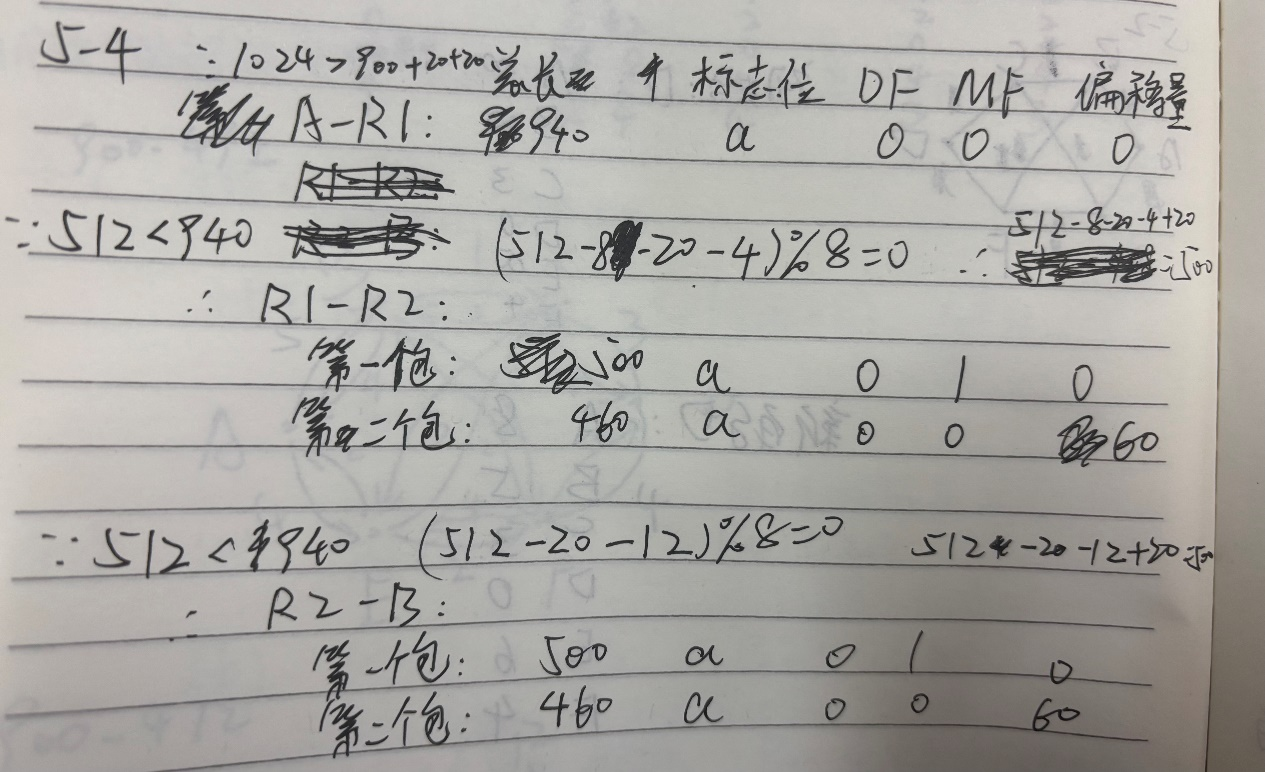 5-4 ∵1024>900+20+20 总长 标志位 DF MF 偏移量
A-R1: 940 a 0 0 0
∵512<940 (512-8-20-4)%8=0 ∴ 512-8-20-4+20
=500
∴ R1-R2:
第一个包: 500 a 0 1 0
第二个包: 460 a 0 0 60
∵512<940 (512-20-12)%8=0 512-20-12+20=500
∴ R2-B:
第一个包: 500 a 0 1 0
第二个包: 460 a 0 0 60